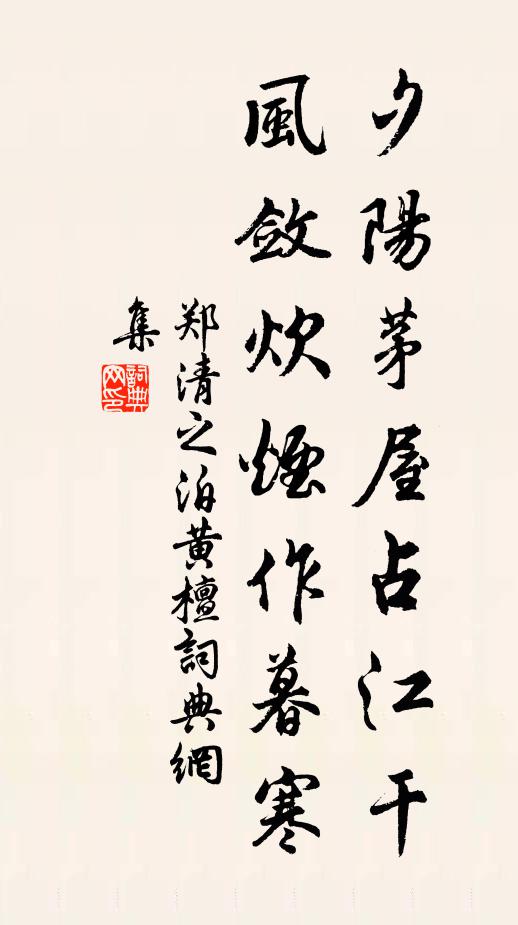 夕陽茅屋占江干
風斂炊煙作暮寒
郑清之泊黄檀詞典網
集
詞典網印